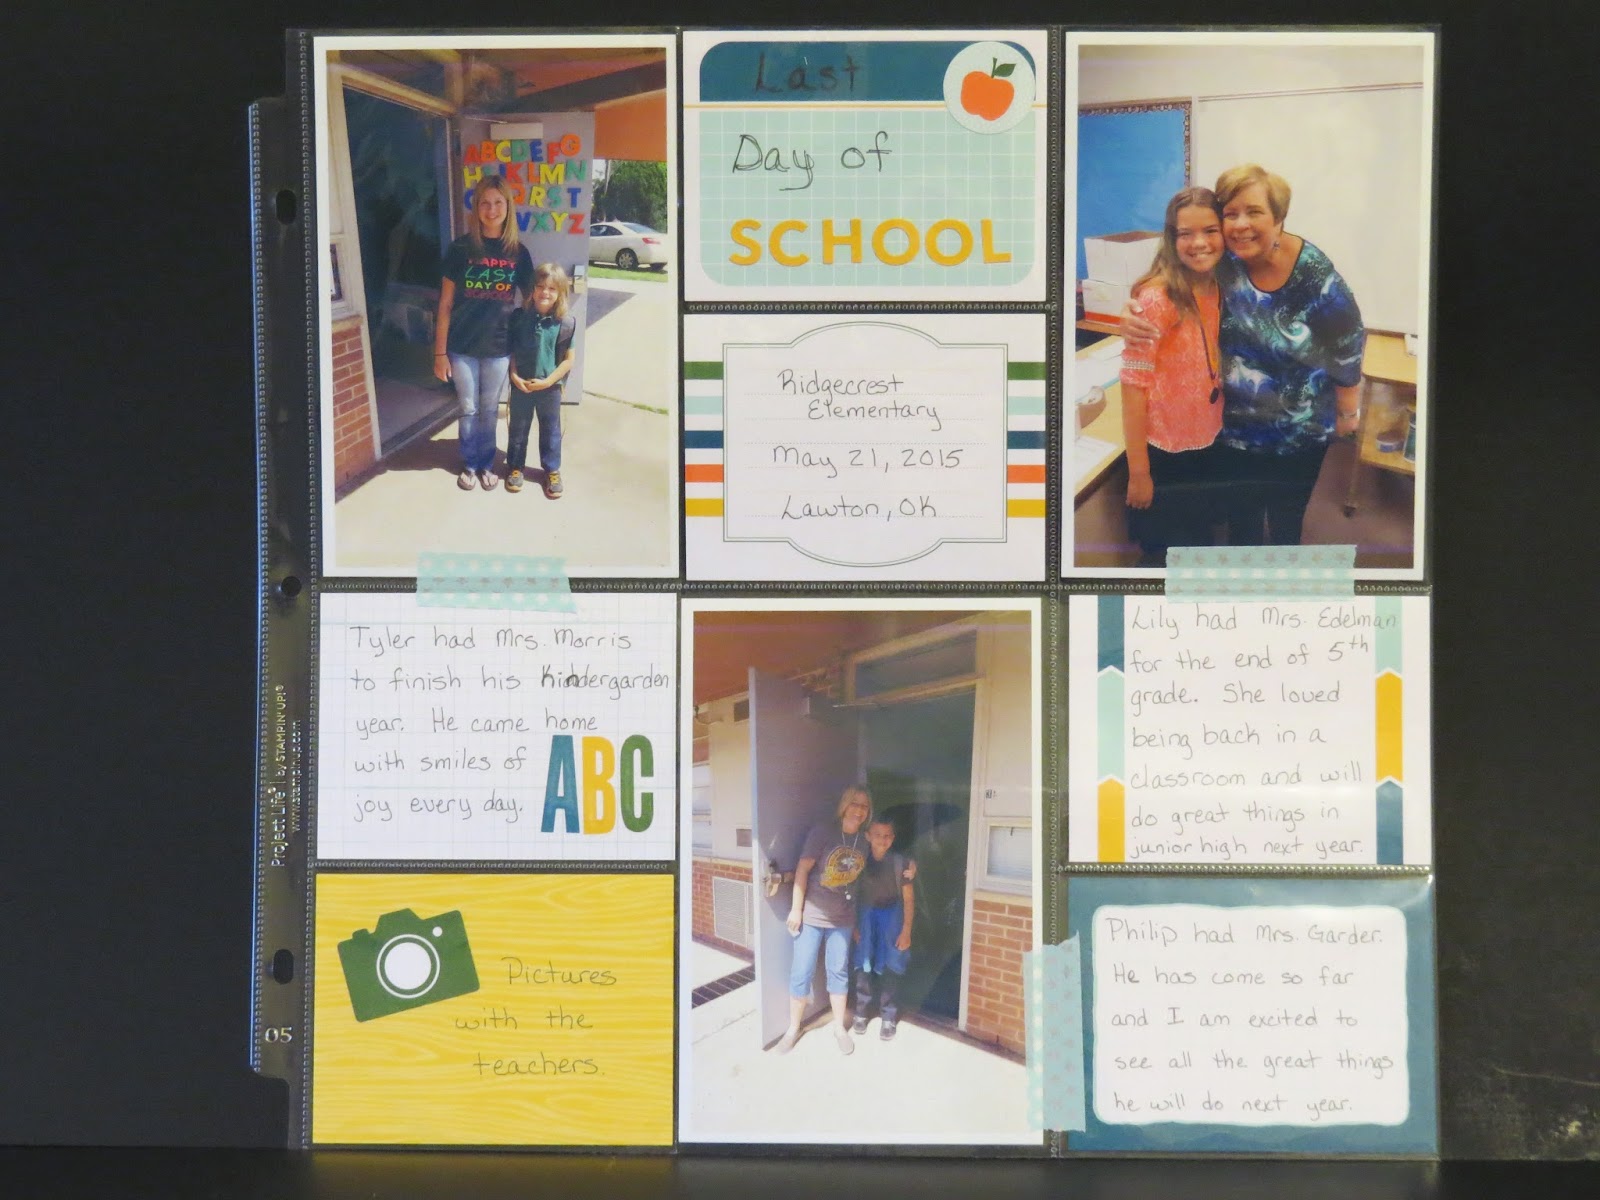 ABCDEFG
LMN
RST
VXYZ
HAPPY
LAST
DAY OF
SCHOOL
Last
Day of
SCHOOL
Ridgecrest
Elementary
May 21, 2015
Lawton, OK
Tyler had Mrs. Morris
to finish his Kindergarden
year. He came home
with smiles of
joy every day.
ABC
Lily had Mrs. Edelman
for the end of 5th
grade. She loved
being back in a
classroom and will
do great things in
junior high next year.
Pictures
with the
teachers.
Philip had Mrs. Garder.
He has come so far
and I am excited to
see all the great things
he will do next year.
Project Life® | by STAMPIN' UP!®
www.stampinup.com
05